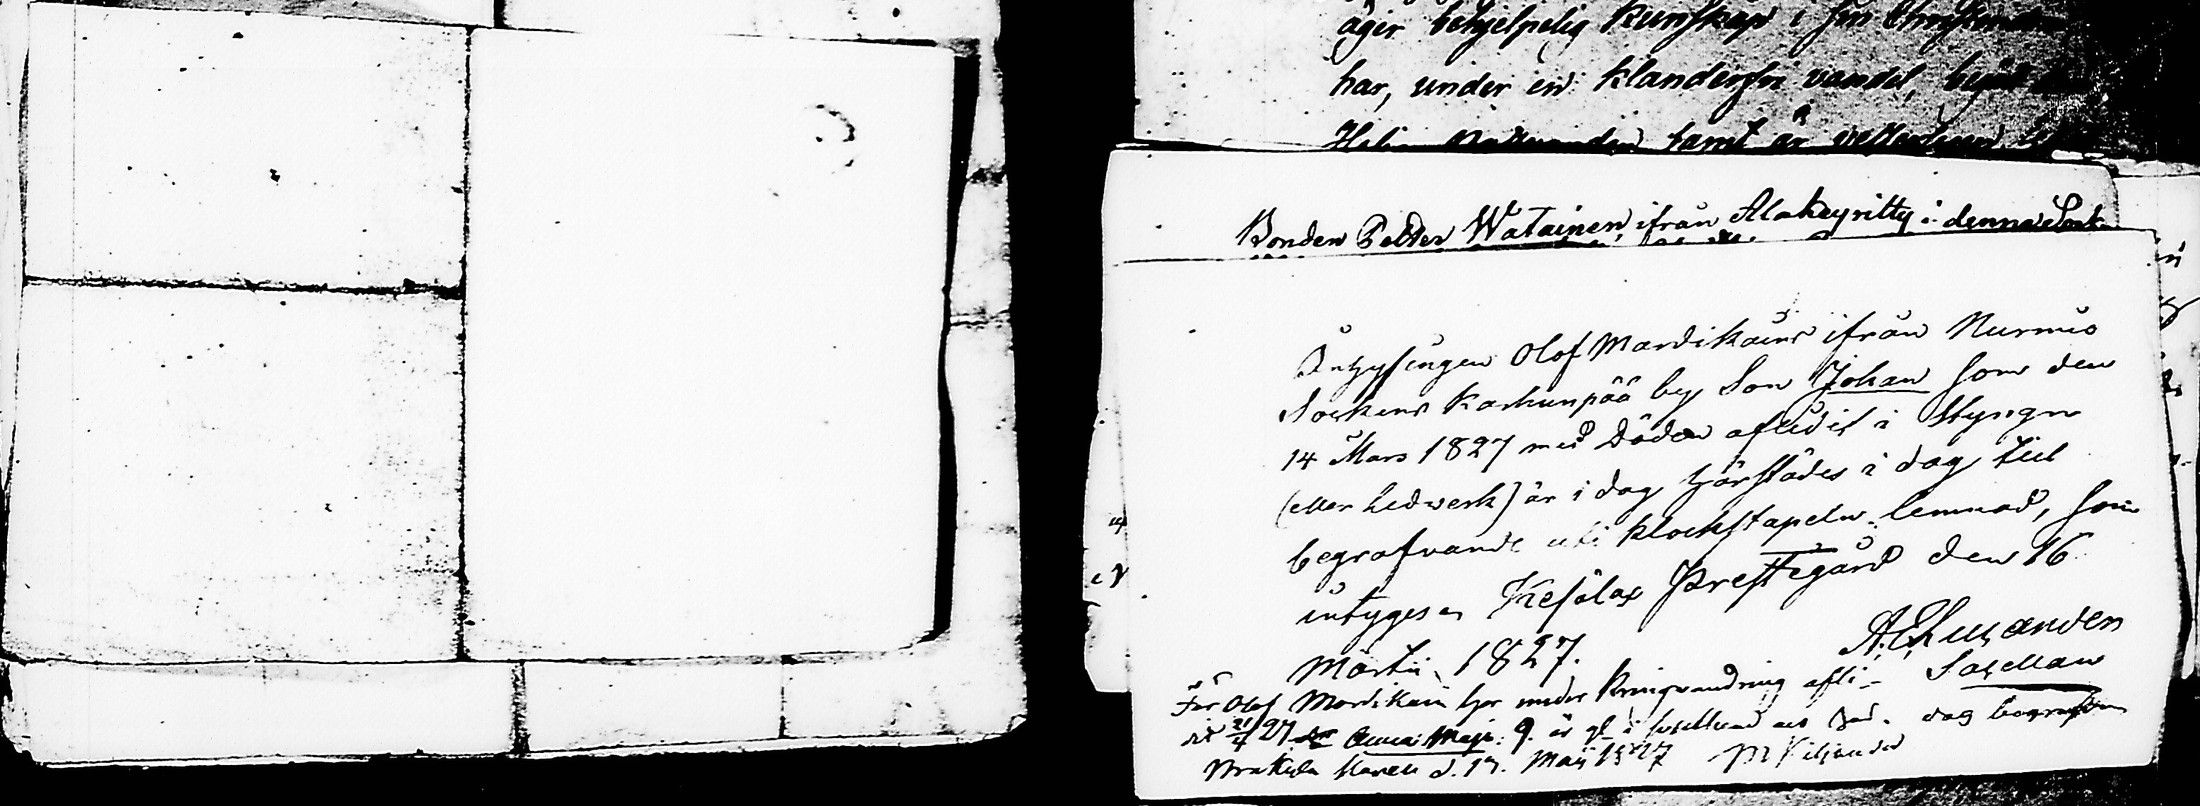 äger behjelpelig kunskap i sin Christendom
har, under en klanderfri vandel, begått
Heliga Nattvarden samt är
Bonden Petter Watainen ifrån Alakeyritty i denna Sock
Inhysingen Olof Mardikains ifrån Nurmis
Sockens Karhunpää by Son Johan som den
14 Mars 1827 med Döden aflidit i Styngn
(eller Ledwerk) är i dag härstädes i dag till
begrafvande uti klockstapeln lemnad, som
intygas Kesälax Prestegård den 16
Martii 1827.
Sacellan
För Olof Mardikain här under kringvandring afli-
dit 21/4 27 Anna Maja 9 är gl i dag begrafven
d. 17 Maij 1827